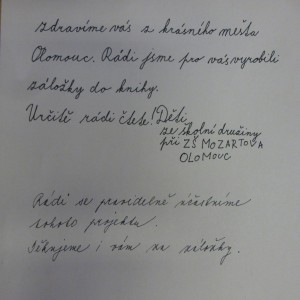 zdravíme vás z krásného města
Olomouc. Rádi jsme pro vás vyrobili
záložky do knihy.
Určitě rádi čtete! Děti
ze školní družiny
při ZŠ MOZARTOVA
OLOMOUC
Rádi se pravidelně účastníme
tohoto projektu.
Děkujeme i vám za záložky.